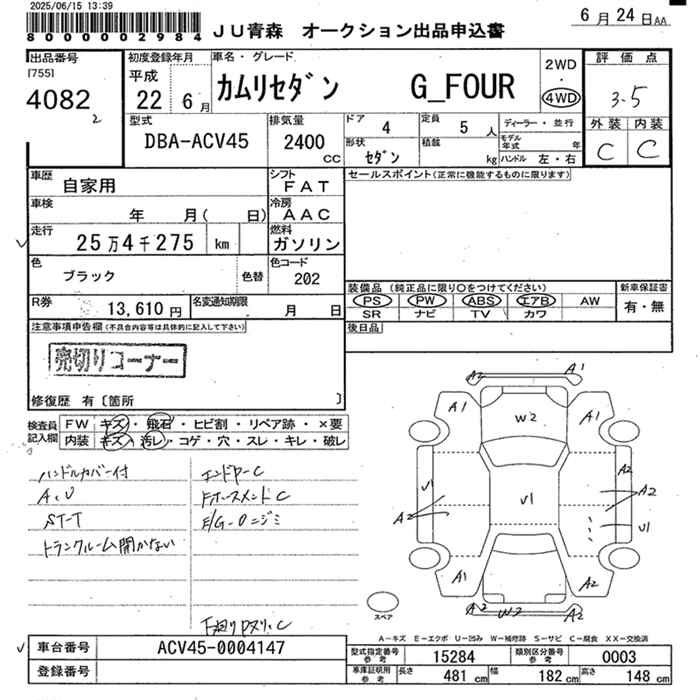 2025/06/15 13:39
8000002984
JU青森 オークション出品申込書
6月24日AA
出品番号
[755]
4082
2
初度登録年月
平成
22 6月
車名・グレード
カムリセダン G_FOUR
2WD
・
4WD
評価点
3.5
外装 内装
C C
型式
DBA-ACV45
排気量
2400
CC
ドア
4
定員
5人
形状
セダン
積載
kg
ディーラー・並行
モデル年式 年
ハンドル 左・右
車歴
自家用
シフト
FAT
セールスポイント(正常に機能するものに限ります)
車検
年 月( 日)
冷房
AAC
走行
25万4千275 km
燃料
ガソリン
色
ブラック
色替
色コード
202
R券
13,610円
名変通知期限
月 日
装備品 (純正品に限り○をつけてください)
PS PW ABS エアB AW
SR ナビ TV カワ
新車保証書
有・無
後日品
注意事項申告欄(不具合内容等は具体的に記入して下さい)
売切りコーナー
修復歴 有〔箇所 〕
検査員記入欄
FW キズ・飛石・ヒビ割・リペア跡・×要
内装 キズ・汚レ・コゲ・穴・スレ・キレ・破レ
ハンドルカバー付
ST-T
トランクルーム開かない
E/G-Oニジミ
A2 A1
A1 W2 A1
V1 V1 A2
A2 A2
V1
A1 A2
A2 W2 A2
スペア
A-キズ E-エクボ U-凹み W-補修跡 S-サビ C-腐食 XX-交換済
車台番号
ACV45-0004147
登録番号
型式指定番号参考
15284
類別区分番号参考
0003
車庫証明用参考
長さ 481cm 幅 182cm 高さ 148cm